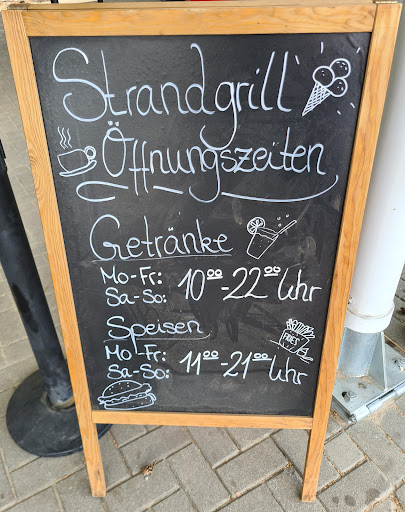 Strandgrill
Öffnungszeiten
Getränke
Mo-Fr:
Sa-So: 10⁰⁰-22⁰⁰ Uhr
Speisen
Mo-Fr:
Sa-So: 11⁰⁰-21⁰⁰ Uhr
FRIES